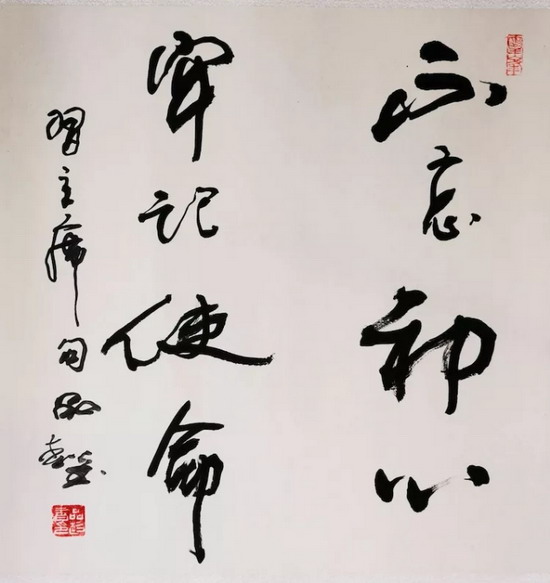 不忘初心
牢记使命
习主席句